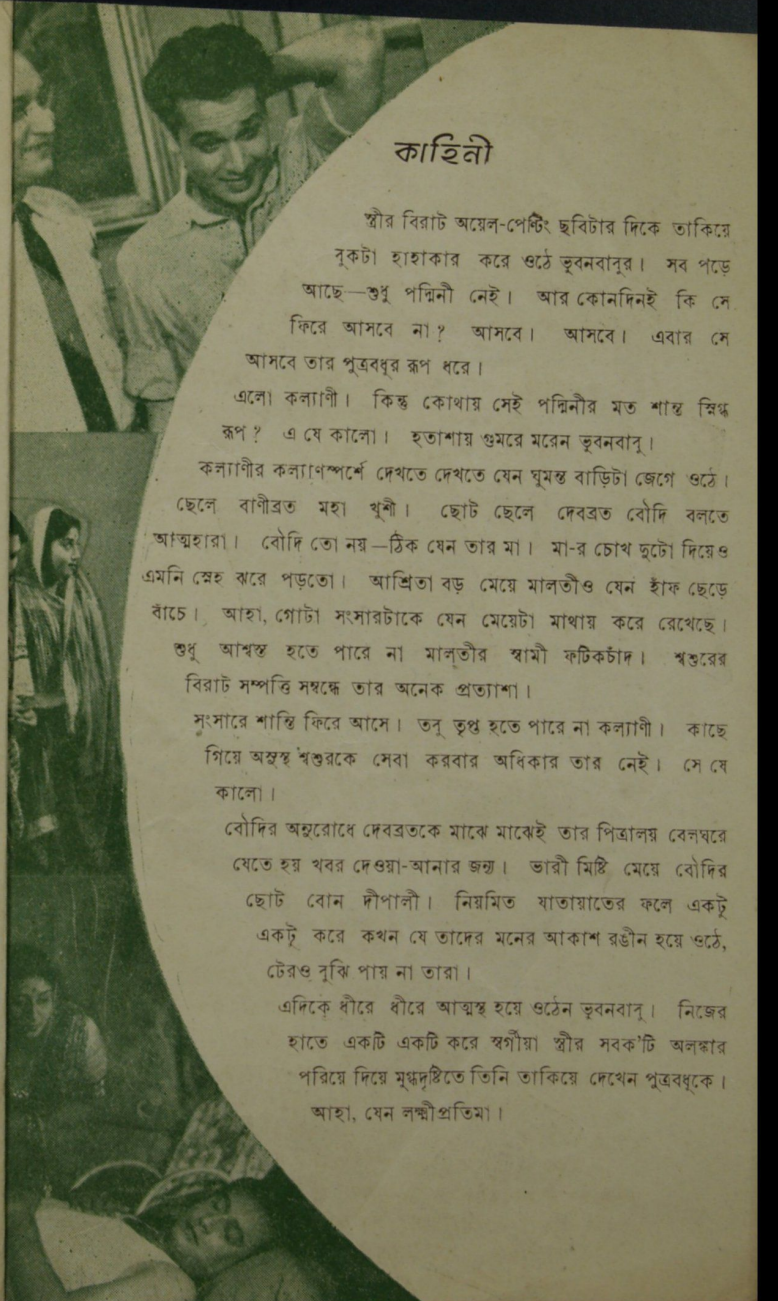 কাহিনী
স্ত্রীর বিরাট অয়েল-পেন্টিং ছবিটার দিকে তাকিয়ে
বুকটা হাহাকার করে ওঠে ভুবনবাবুর। সব পড়ে
আছে—শুধু পদ্মিনী নেই। আর কোনদিনই কি সে
ফিরে আসবে না? আসবে। আসবে। এবার সে
আসবে তার পুত্রবধূর রূপ ধরে।
এলো কল্যাণী। কিন্তু কোথায় সেই পদ্মিনীর মত শান্ত স্নিগ্ধ
রূপ? এ যে কালো। হতাশায় গুমরে মরেন ভুবনবাবু।
কল্যাণীর কল্যাণস্পর্শে দেখতে দেখতে যেন ঘুমন্ত বাড়িটা জেগে ওঠে।
ছেলে বাণীব্রত মহা খুশী। ছোট ছেলে দেবব্রত বৌদি বলতে
আত্মহারা। বৌদি তো নয়—ঠিক যেন তার মা। মা-র চোখ দুটো দিয়েও
এমনি স্নেহ ঝরে পড়তো। আশ্রিতা বড় মেয়ে মালতীও যেন হাঁফ ছেড়ে
বাঁচে। আহা, গোটা সংসারটাকে যেন মেয়েটা মাথায় করে রেখেছে।
শুধু আশ্বস্ত হতে পারে না মালতীর স্বামী ফটিকচাঁদ। শ্বশুরের
বিরাট সম্পত্তি সম্বন্ধে তার অনেক প্রত্যাশা।
সংসারে শান্তি ফিরে আসে। তবু তৃপ্ত হতে পারে না কল্যাণী। কাছে
গিয়ে অসুস্থ শ্বশুরকে সেবা করবার অধিকার তার নেই। সে যে
কালো।
বৌদির অনুরোধে দেবব্রতকে মাঝে মাঝেই তার পিত্রালয় বেলঘরে
যেতে হয় খবর দেওয়া-আনার জন্য। ভারী মিষ্টি মেয়ে বৌদির
ছোট বোন দীপালী। নিয়মিত যাতায়াতের ফলে একটু
একটু করে কখন যে তাদের মনের আকাশ রঙীন হয়ে ওঠে,
টেরও বুঝি পায় না তারা।
এদিকে ধীরে ধীরে আত্মস্থ হয়ে ওঠেন ভুবনবাবু। নিজের
হাতে একটি একটি করে স্বর্গীয়া স্ত্রীর সবক'টি অলঙ্কার
পরিয়ে দিয়ে মুগ্ধদৃষ্টিতে তিনি তাকিয়ে দেখেন পুত্রবধূকে।
আহা, যেন লক্ষ্মীপ্রতিমা।